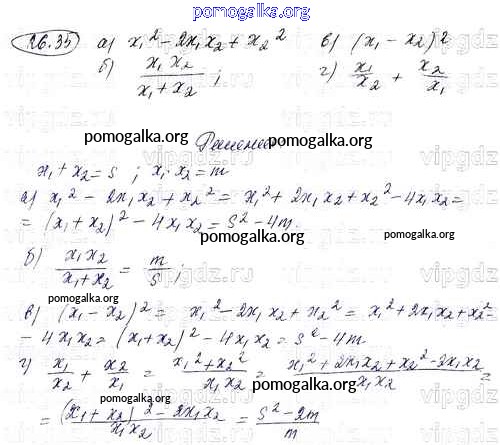 pomogalka.org
26.35 а) x₁² - 2x₁x₂ + x₂² в) (x₁ - x₂)²
б) x₁x₂ / (x₁ + x₂); г) x₁/x₂ + x₂/x₁
pomogalka.org pomogalka.org
Решение
x₁ + x₂ = s ; x₁ · x₂ = m
а) x₁² - 2x₁x₂ + x₂² = x₁² + 2x₁x₂ + x₂² - 4x₁x₂ =
= (x₁ + x₂)² - 4x₁x₂ = s² - 4m.
pomogalka.org
б) x₁x₂ / (x₁ + x₂) = m/s ;
в) (x₁ - x₂)² = x₁² - 2x₁x₂ + x₂² = x₁² + 2x₁x₂ + x₂² -
- 4x₁x₂ = (x₁ + x₂)² - 4x₁x₂ = s² - 4m
г) x₁/x₂ + x₂/x₁ = (x₁² + x₂²) / x₁x₂ = (x₁² + 2x₁x₂ + x₂² - 2x₁x₂) / x₁x₂ =
pomogalka.org
= ((x₁ + x₂)² - 2x₁x₂) / x₁x₂ = (s² - 2m) / m
pomogalka.org